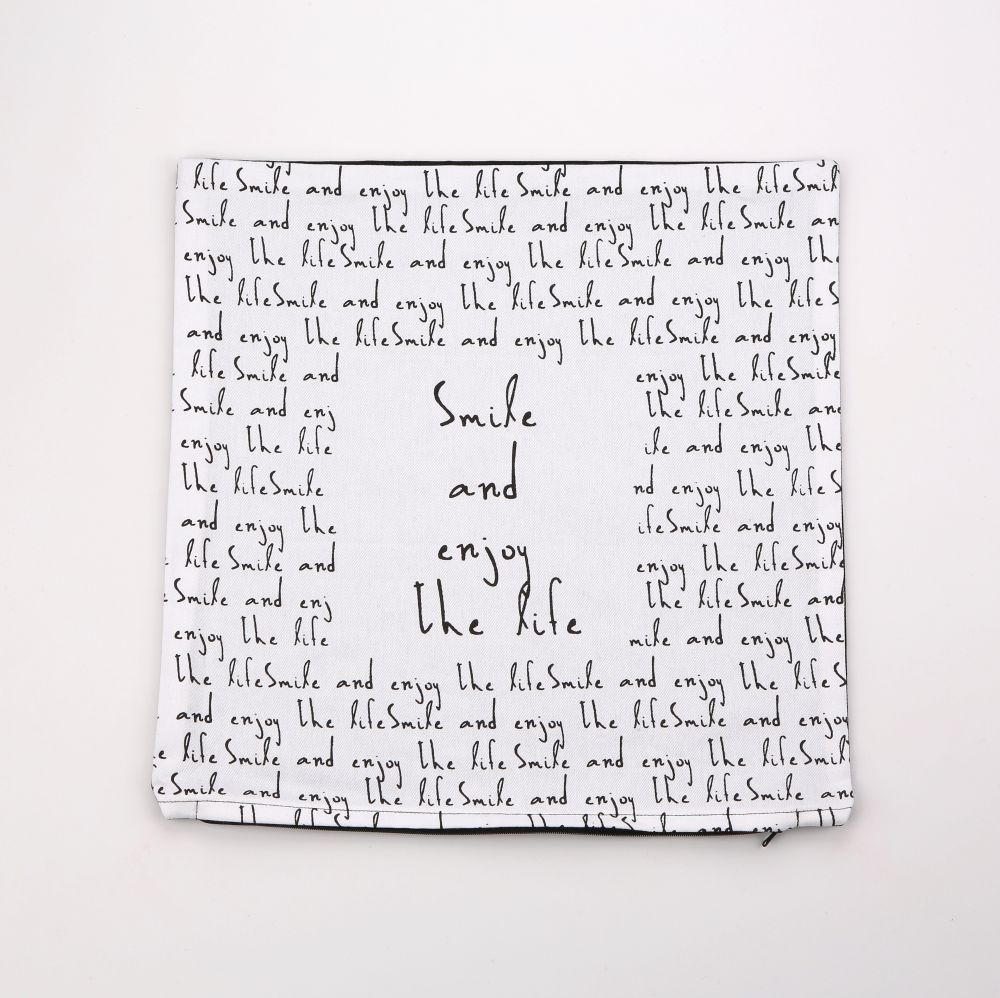 life Smile and enjoy the life Smile and enjoy the life Smil
Smile and enjoy the life Smile and enjoy the life Smile an
enjoy the life Smile and enjoy the life Smile and enjoy the
the life Smile and enjoy the life Smile and enjoy the life S
and enjoy the life Smile and enjoy the life Smile and enjoy
life Smile and
enjoy the life Smile
Smile and enj
the life Smile and
enjoy the life
ile and enjoy the
the life Smile
nd enjoy the life S
and enjoy the
ife Smile and enjoy
life Smile and
enjoy the life Smile
Smile and enj
the life Smile and
enjoy the life
mile and enjoy the
Smile
and
enjoy
the life
the life Smile and enjoy the life Smile and enjoy the life S
and enjoy the life Smile and enjoy the life Smile and enjoy
e life Smile and enjoy the life Smile and enjoy the life Smil
e Smile and enjoy the life Smile and enjoy the life Smile and